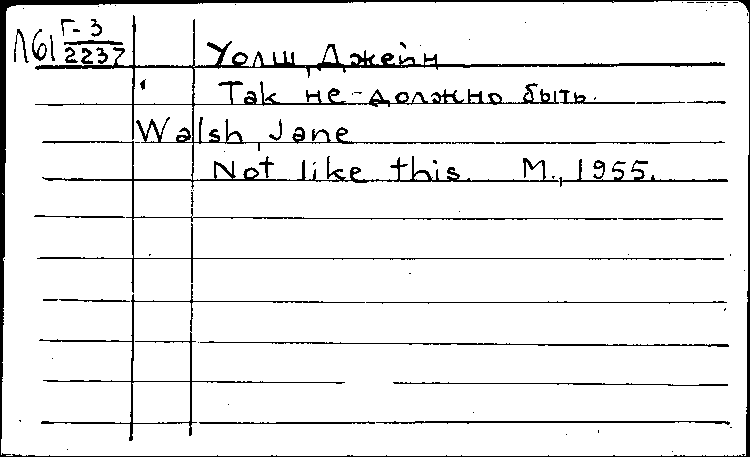 Л61 Г-3/2237
Уолш, Джейн
Так не должно быть.
Walsh, Jane
Not like this. М., 1955.